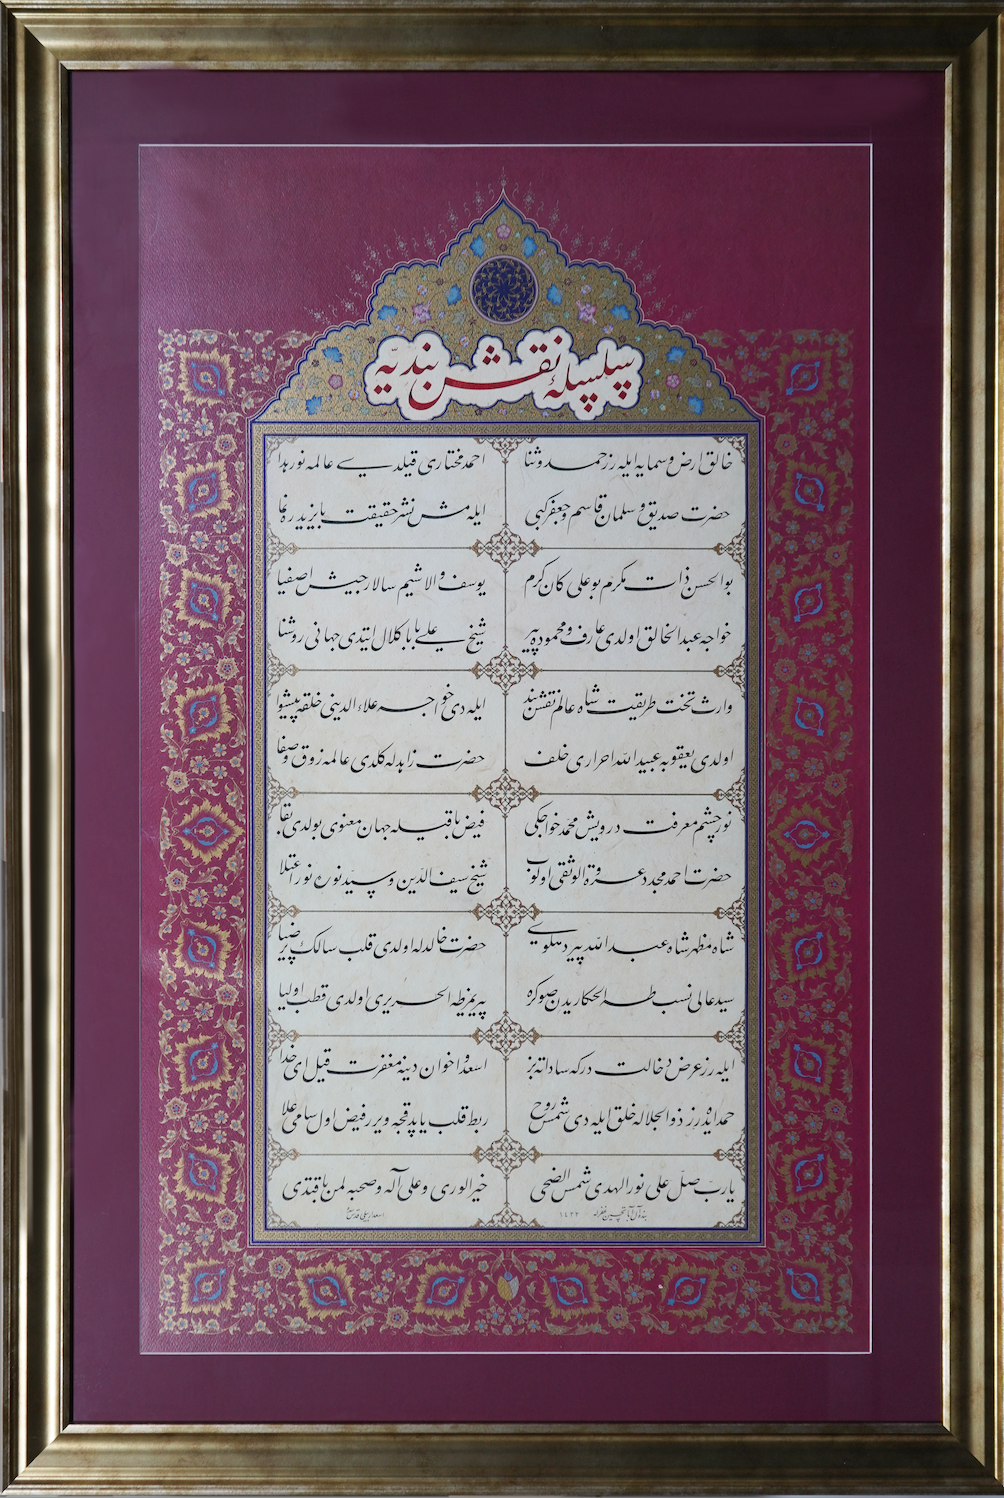 سلسلهٔ نقشبندیّه
خالق ارض و سمایه ایله رز حمد و ثنا احمد مختاری قیلدی عالمه نور هدا
حضرت صدیق و سلمان قاسم و جعفر کبی ایله مش نشر حقیقت بایزید
بوالحسن ذات مکرم بوعلی کان کرم یوسف والاشیم سالار جیش اصفیا
خواجه عبدالخالق اولدی عارف و محموده پیر شیخ علی بابا کلال ایتدی جهانی روشنا
وارث تخت طریقت شاه عالم نقشبند ایله دی خواجه علاءالدینی خلقه پیشوا
اولدی یعقوبه عبیدالله احراری خلف حضرت زاهدله کلدی عالمه ذوق و صفا
نور چشم معرفت درویش محمد خواجکی فیض باقیله جهان معنوی بولدی بقا
حضرت احمد مجدد عروة الوثقی اولوب شیخ سیف الدین و سیّد نوره نور اعتلا
شاه مظهر شاه عبدالله پیر دهلوی حضرت خالدله اولدی قلب سالک پر ضیا
سید عالی نسب طه الحکاریدن صوکره پیریمز طه الحریری اولدی قطب اولیا
ایله رز عرض دخالت درکه ساداته بز اسعد اخوان دینه مغفرت قیل ای خدا
حمد ایدرز ذوالجلاله خلق ایله دی شمس روح ربط قلب یاپدقجه ویرر فیض اول سامی علا
یارب صلّ علی نور الهدی شمس الضحی خیر الوری و علی آله و صحبه لمن باقتدی
١٤٢٢